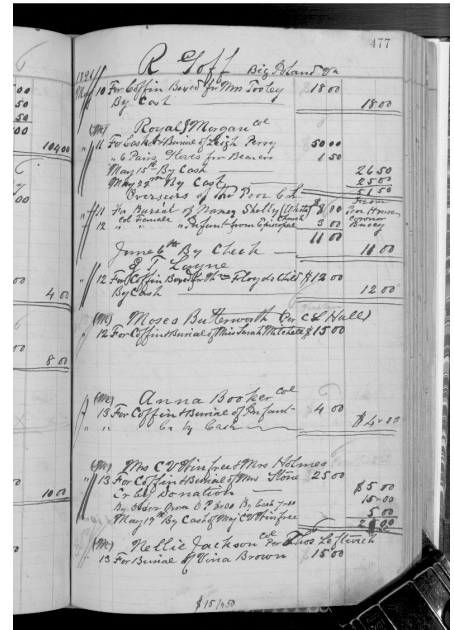 477
R Goff Big Island Va
189
May 10 For Coffin Boxed for Mrs Tooley 18 00
By Cash 18 00
(Mc) Royal J Morgan col
" 11 For Casket & Burial of Leigh Perry 50 00
" 6 Pairs Gloves for Bearers 1 50
May 15th By Cash 26 50
May 29th By Cash 25 00
51 50
Overseers of the Poor C L
" 11 For Burial of Nancy Shelby (White) $8 00 From Poor House
" 12 Col Female " " Infant from Episcopal Church 3 00
11 00
June 6th By Check 11 00
E T Layne
" 12 For Coffin Boxed for Floyds Child $12 00
By Cash 12 00
(Mc) Moses Butterworth (Per C S Hall)
12 For Coffin & Burial of Miss Sarah Mitchell $15 00
(Mc) Anna Booker col
" 13 For Coffin & Burial of Infant 4 00
" " Cr by Cash $4.00
(Mc) Mrs C V Winfree & Mrs Holmes
" 13 For Coffin & Burial of Mrs Stone 25 00
Cr by Donation $5 00
By Cash 15.00
May 19th By Cash of Maj C V Winfree 5 00
25 00
(Mc) Nellie Jackson col Per Thos Leftwich
" 13 For Burial of Vina Brown 15 00
$15/450
00
50
50
00
104 00
00
4 00
00
8 00
00
10 00
00
00